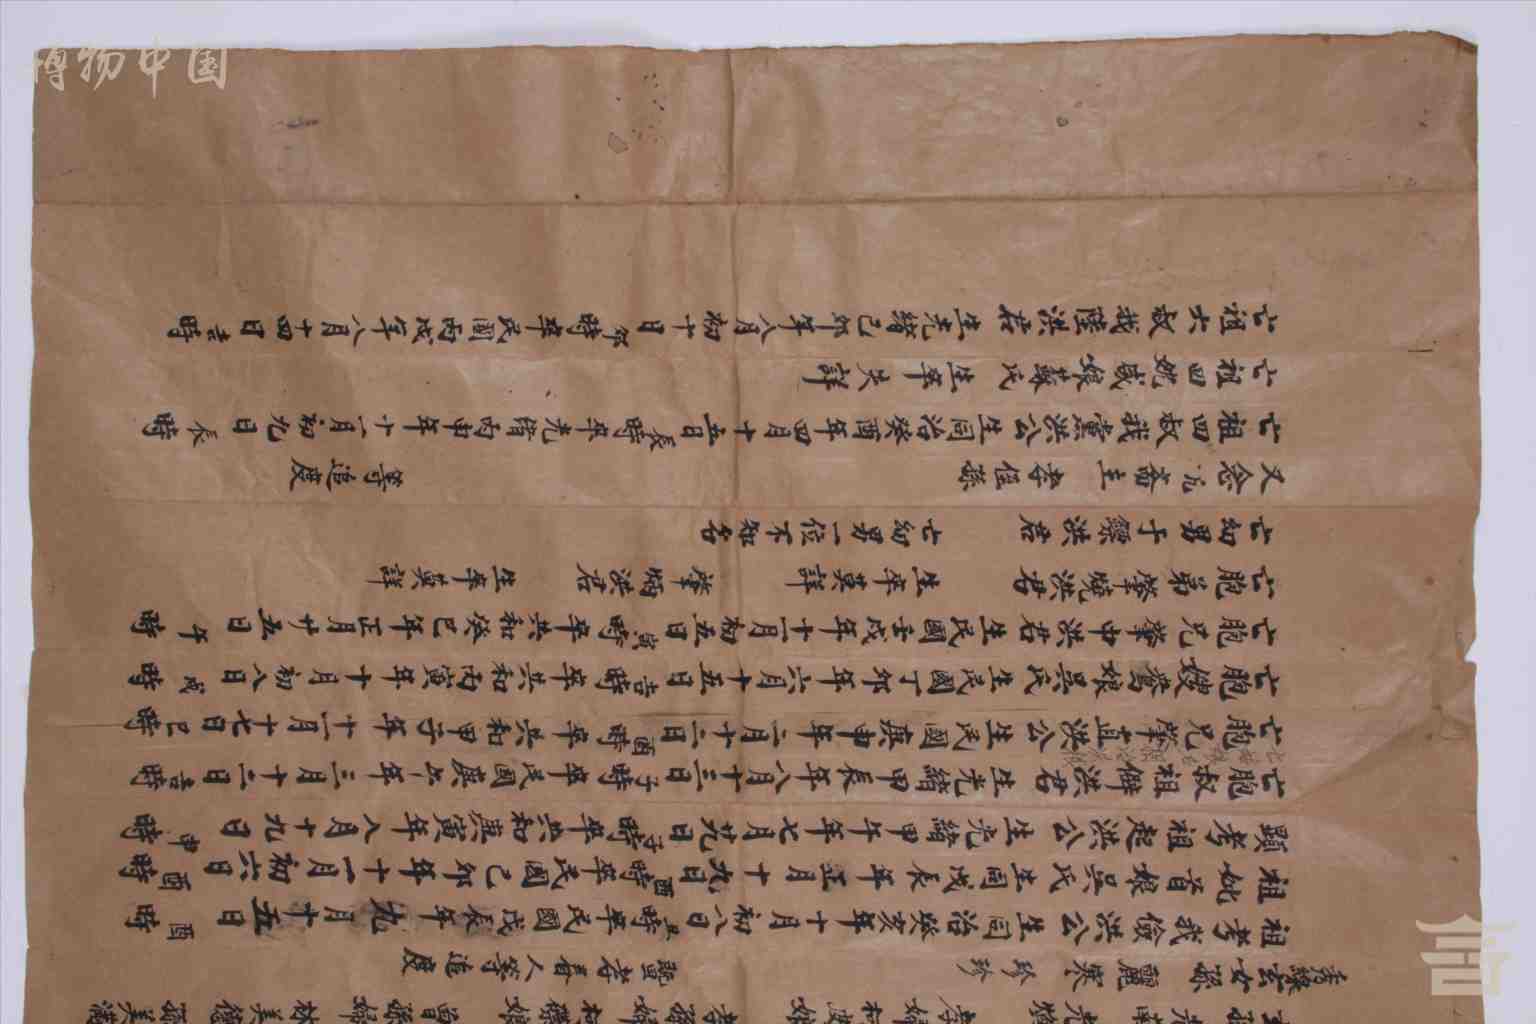 秀緣玄女孫麗寒珍珍 等追度
祖考我儉洪公生同治癸亥年十月初八日丑時卒民國戊辰年九月十五日酉時
祖妣首娘吳氏生同戊辰年正月十九日酉時卒民國己卯年十一月初六日酉時
顯考祖起洪公生光緒甲午年七月廿九日子時卒共和庚寅年八月十九日申時
亡胞叔祖僻洪君生光緒甲辰年八月十三日子時卒民國庚午年三月十二日吉時
亡胞兄肇苴洪公生民國庚申年二月十三日酉時卒共和甲子年十二月十七日巳時
亡胞嫂鴦娘吳氏生民國丁卯年六月十五日吉時卒共和丙寅年十月初八日戌時
亡胞兄肇申洪君生民國壬戌年十二月初五日寅時卒共和癸巳年正月廿五日午時
亡胞弟肇曉洪君 生卒莫詳 肇炳洪君 生卒莫詳
亡幼男于鏢洪君 亡幼男一位不知名
又念亢齋主 孝侄孫 等追度
亡祖四叔我黨洪公生同治癸酉年四月十五日辰時卒光緒丙申年十二月初九日辰時
亡祖四妣咸娘蘇氏生卒失詳
亡祖六叔我陸洪君生光緒己卯年八月初十日卯時卒民國丙戌年八月十四日吉時
博物中国